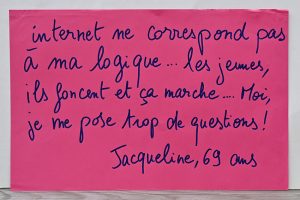 internet ne correspond pas
à ma logique... les jeunes,
ils foncent et ça marche.... Moi,
je me pose trop de questions !
Jacqueline, 69 ans